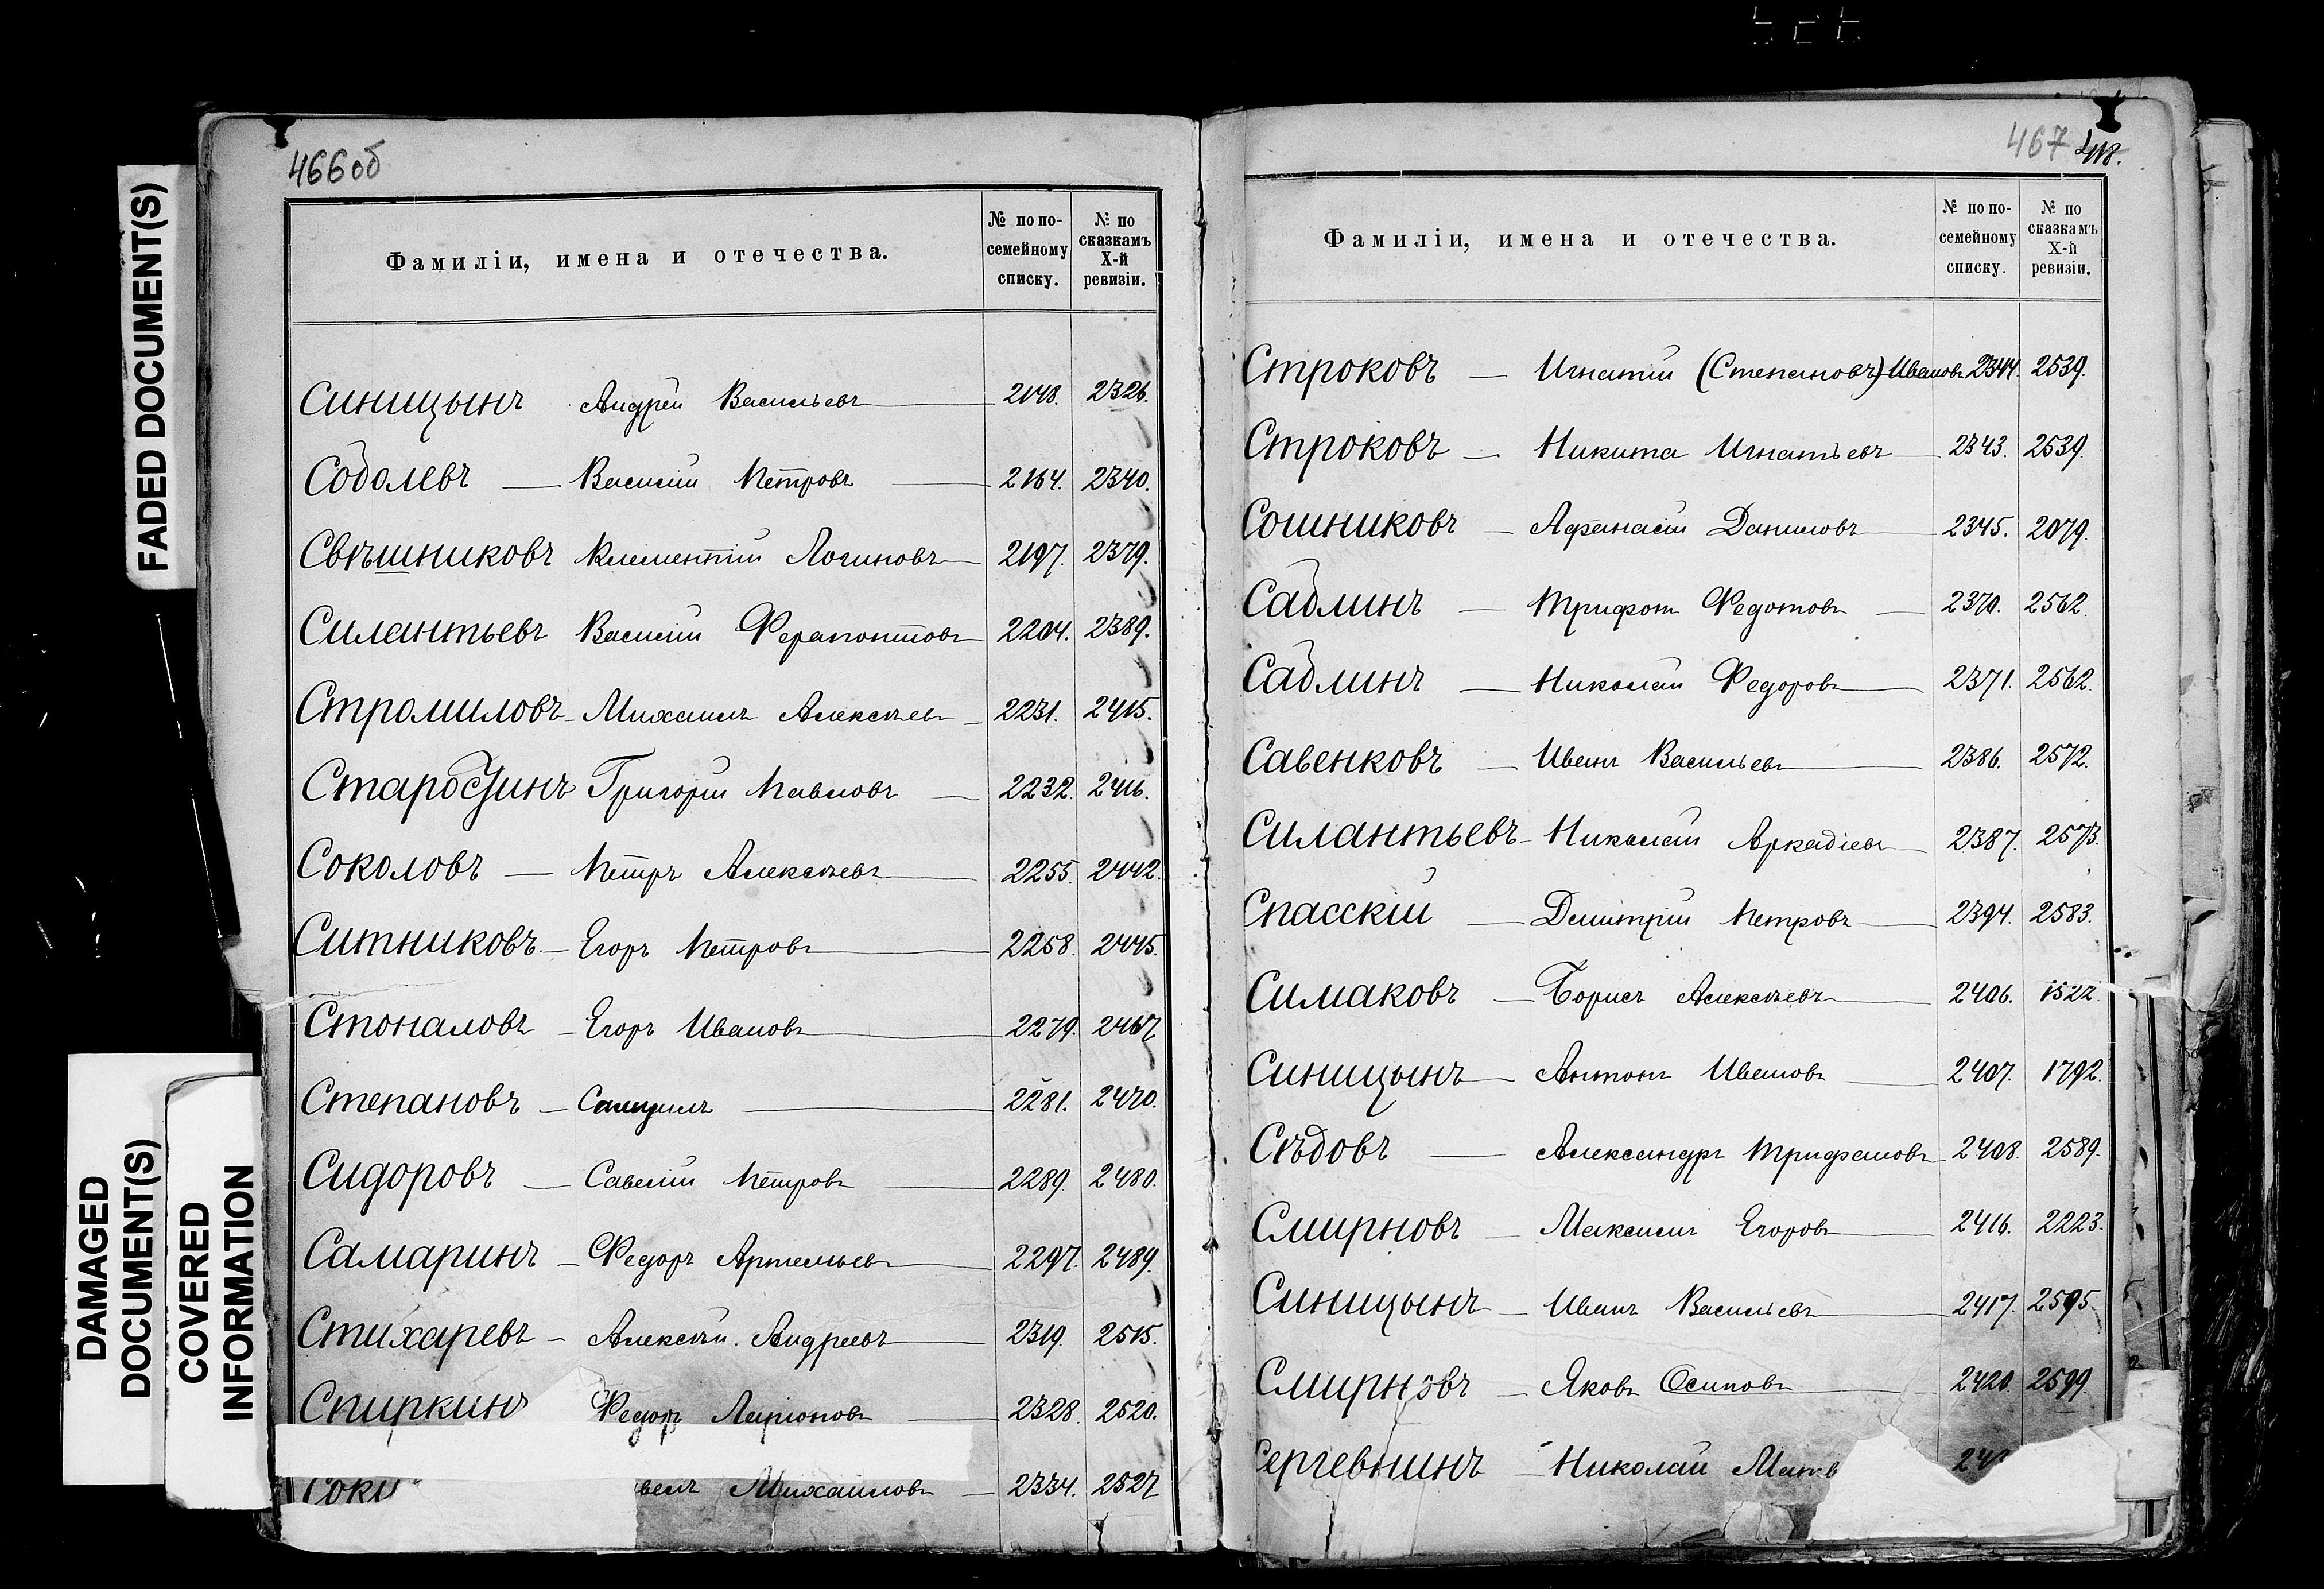 FADED DOCUMENT(S)
DAMAGED
DOCUMENT(S)
COVERED
INFORMATION
466об
Фамиліи, имена и отечества.
№ по по-
семейному
списку.
№ по
сказкамъ
X-й
ревизіи.
Синицынъ Андрей Васильевъ 2148. 2326.
Соболевъ — Василій Петровъ — 2164. 2340.
Свѣшниковъ Клементій Логиновъ — 2197. 2379.
Силантьевъ Василій Ферапонтовъ 2204. 2389.
Стромиловъ — Михаилъ Алексѣевъ — 2231. 2415.
Старостинъ Григорій Павловъ — 2232. 2416.
Соколовъ — Петръ Алексѣевъ — 2255. 2442.
Ситниковъ — Егоръ Петровъ — 2258. 2445.
Стоналовъ — Егоръ Ивановъ — 2279. 2467.
Степановъ — Самуилъ — 2281. 2470.
Сидоровъ — Савелій Петровъ — 2289. 2480.
Самаринъ — Федоръ Артемьевъ — 2297. 2489.
Стихаревъ — Алексѣй Андреевъ — 2319. 2515.
Спиркинъ Федоръ Ларіоновъ — 2328. 2520.
Михаиловъ — 2334. 2527.
467 418.
Фамиліи, имена и отечества.
№ по по-
семейному
списку.
№ по
сказкамъ
X-й
ревизіи.
Строковъ — Игнатій (Степановъ) Ивановъ 2344. 2539.
Строковъ — Никита Игнатьевъ — 2343. 2539.
Сошниковъ — Афанасій Даниловъ — 2345. 2079.
Саблинъ — Трифонъ Федотовъ — 2370. 2562.
Саблинъ — Николай Федоровъ — 2371. 2562.
Савенковъ — Иванъ Васильевъ — 2386. 2572.
Силантьевъ — Николай Аркадіевъ — 2387. 2573.
Спасскій — Дмитрій Петровъ — 2394. 2583.
Симаковъ — Борисъ Алексѣевъ — 2406. 1522.
Синицынъ — Антонъ Ивановъ — 2407. 1792.
Сѣдовъ — Александръ Трифановъ — 2408. 2589.
Смирновъ — Максимъ Егоровъ — 2416. 2223.
Синицынъ — Иванъ Васильевъ — 2417. 2595.
Смирновъ — Яковъ Осиповъ — 2420. 2599.
Сергевнинъ — Николай